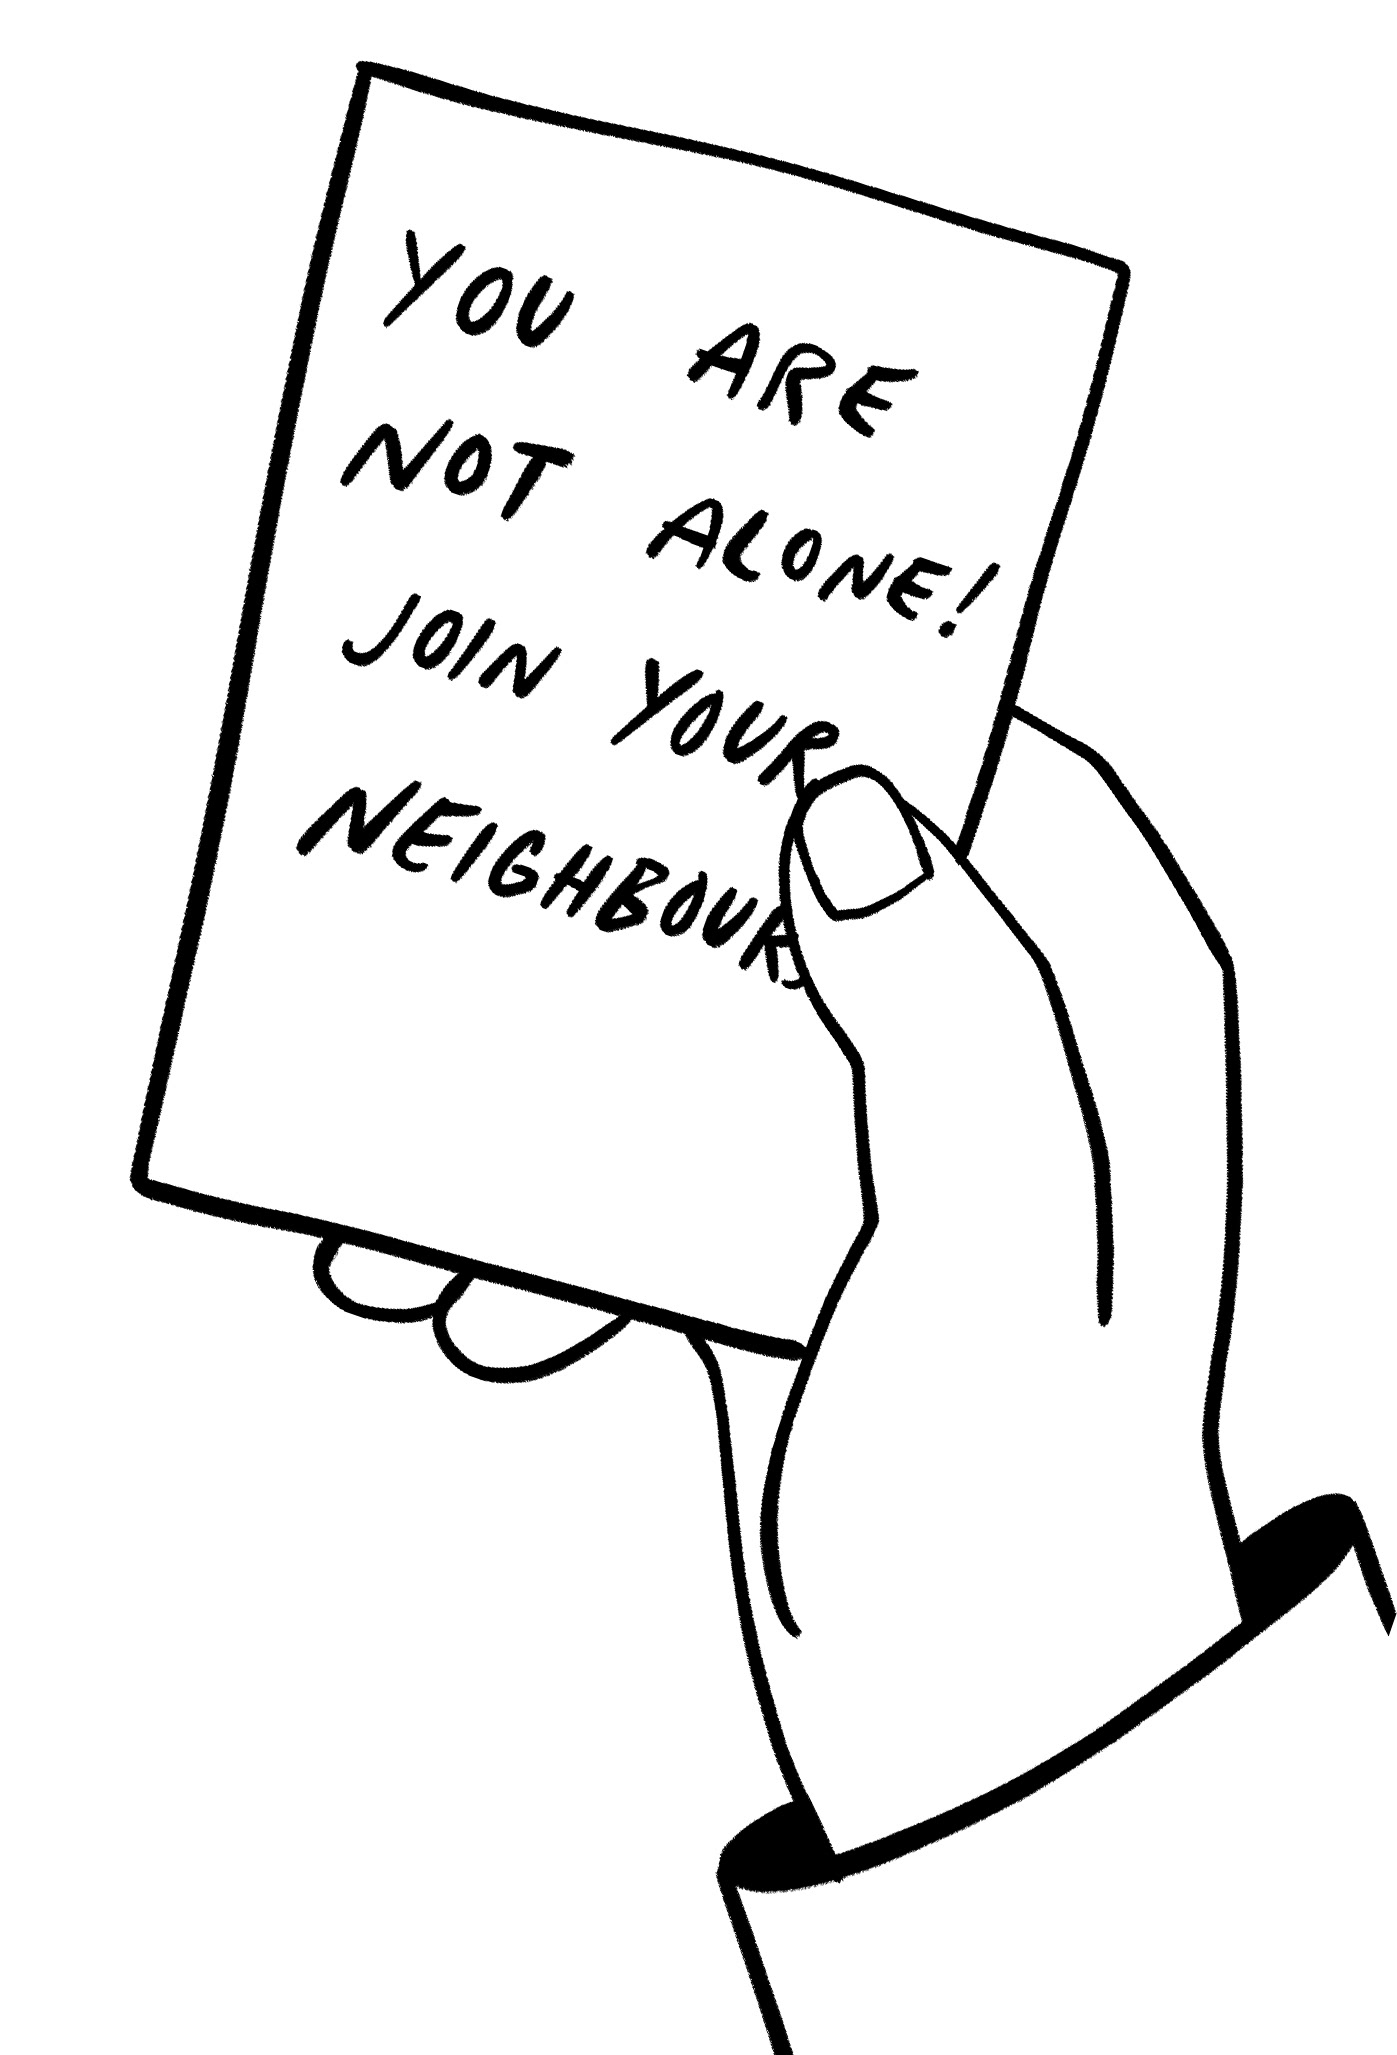 YOU ARE
NOT ALONE!
JOIN YOUR
NEIGHBOURS